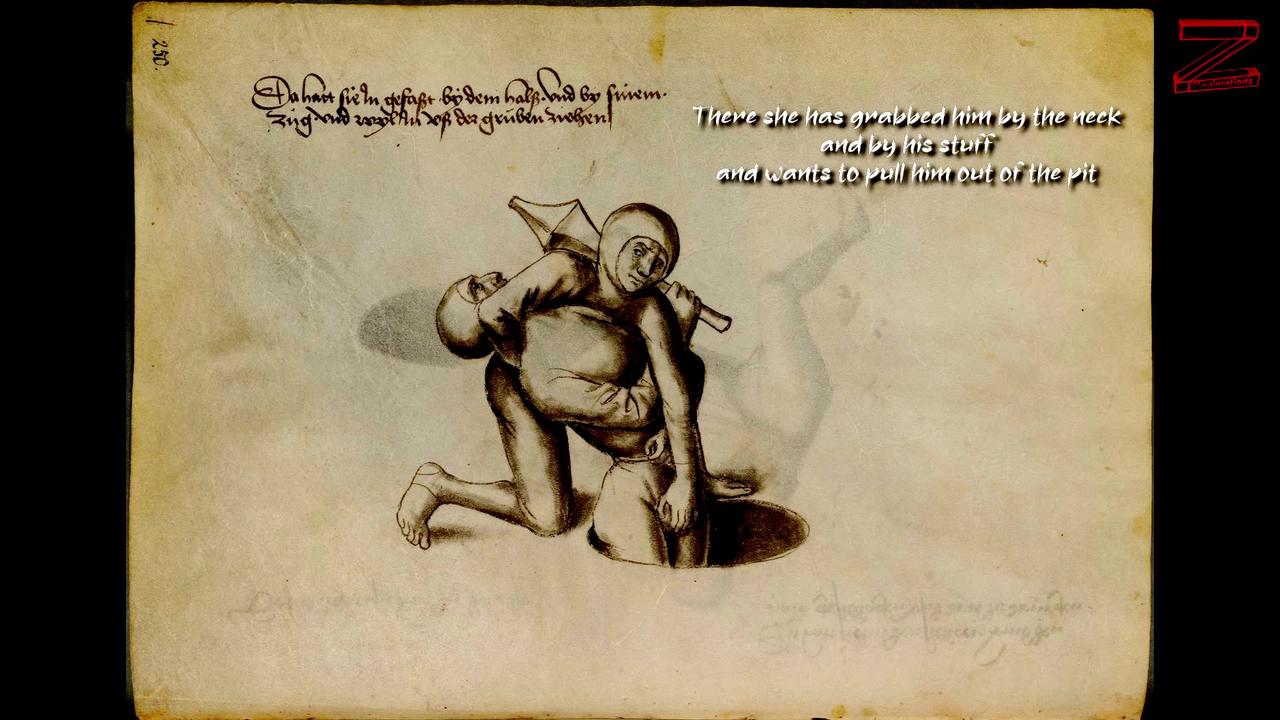 250.
Da hatt sie In gefasst by dem halß Vnd by sinem
züg Vnd wyl In vß der gruben ziehen
There she has grabbed him by the neck
and by his stuff
and wants to pull him out of the pit
Z